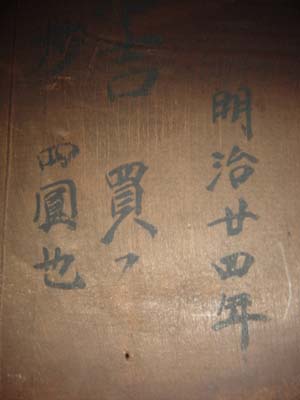 明治廿四年
買フ
四圓也